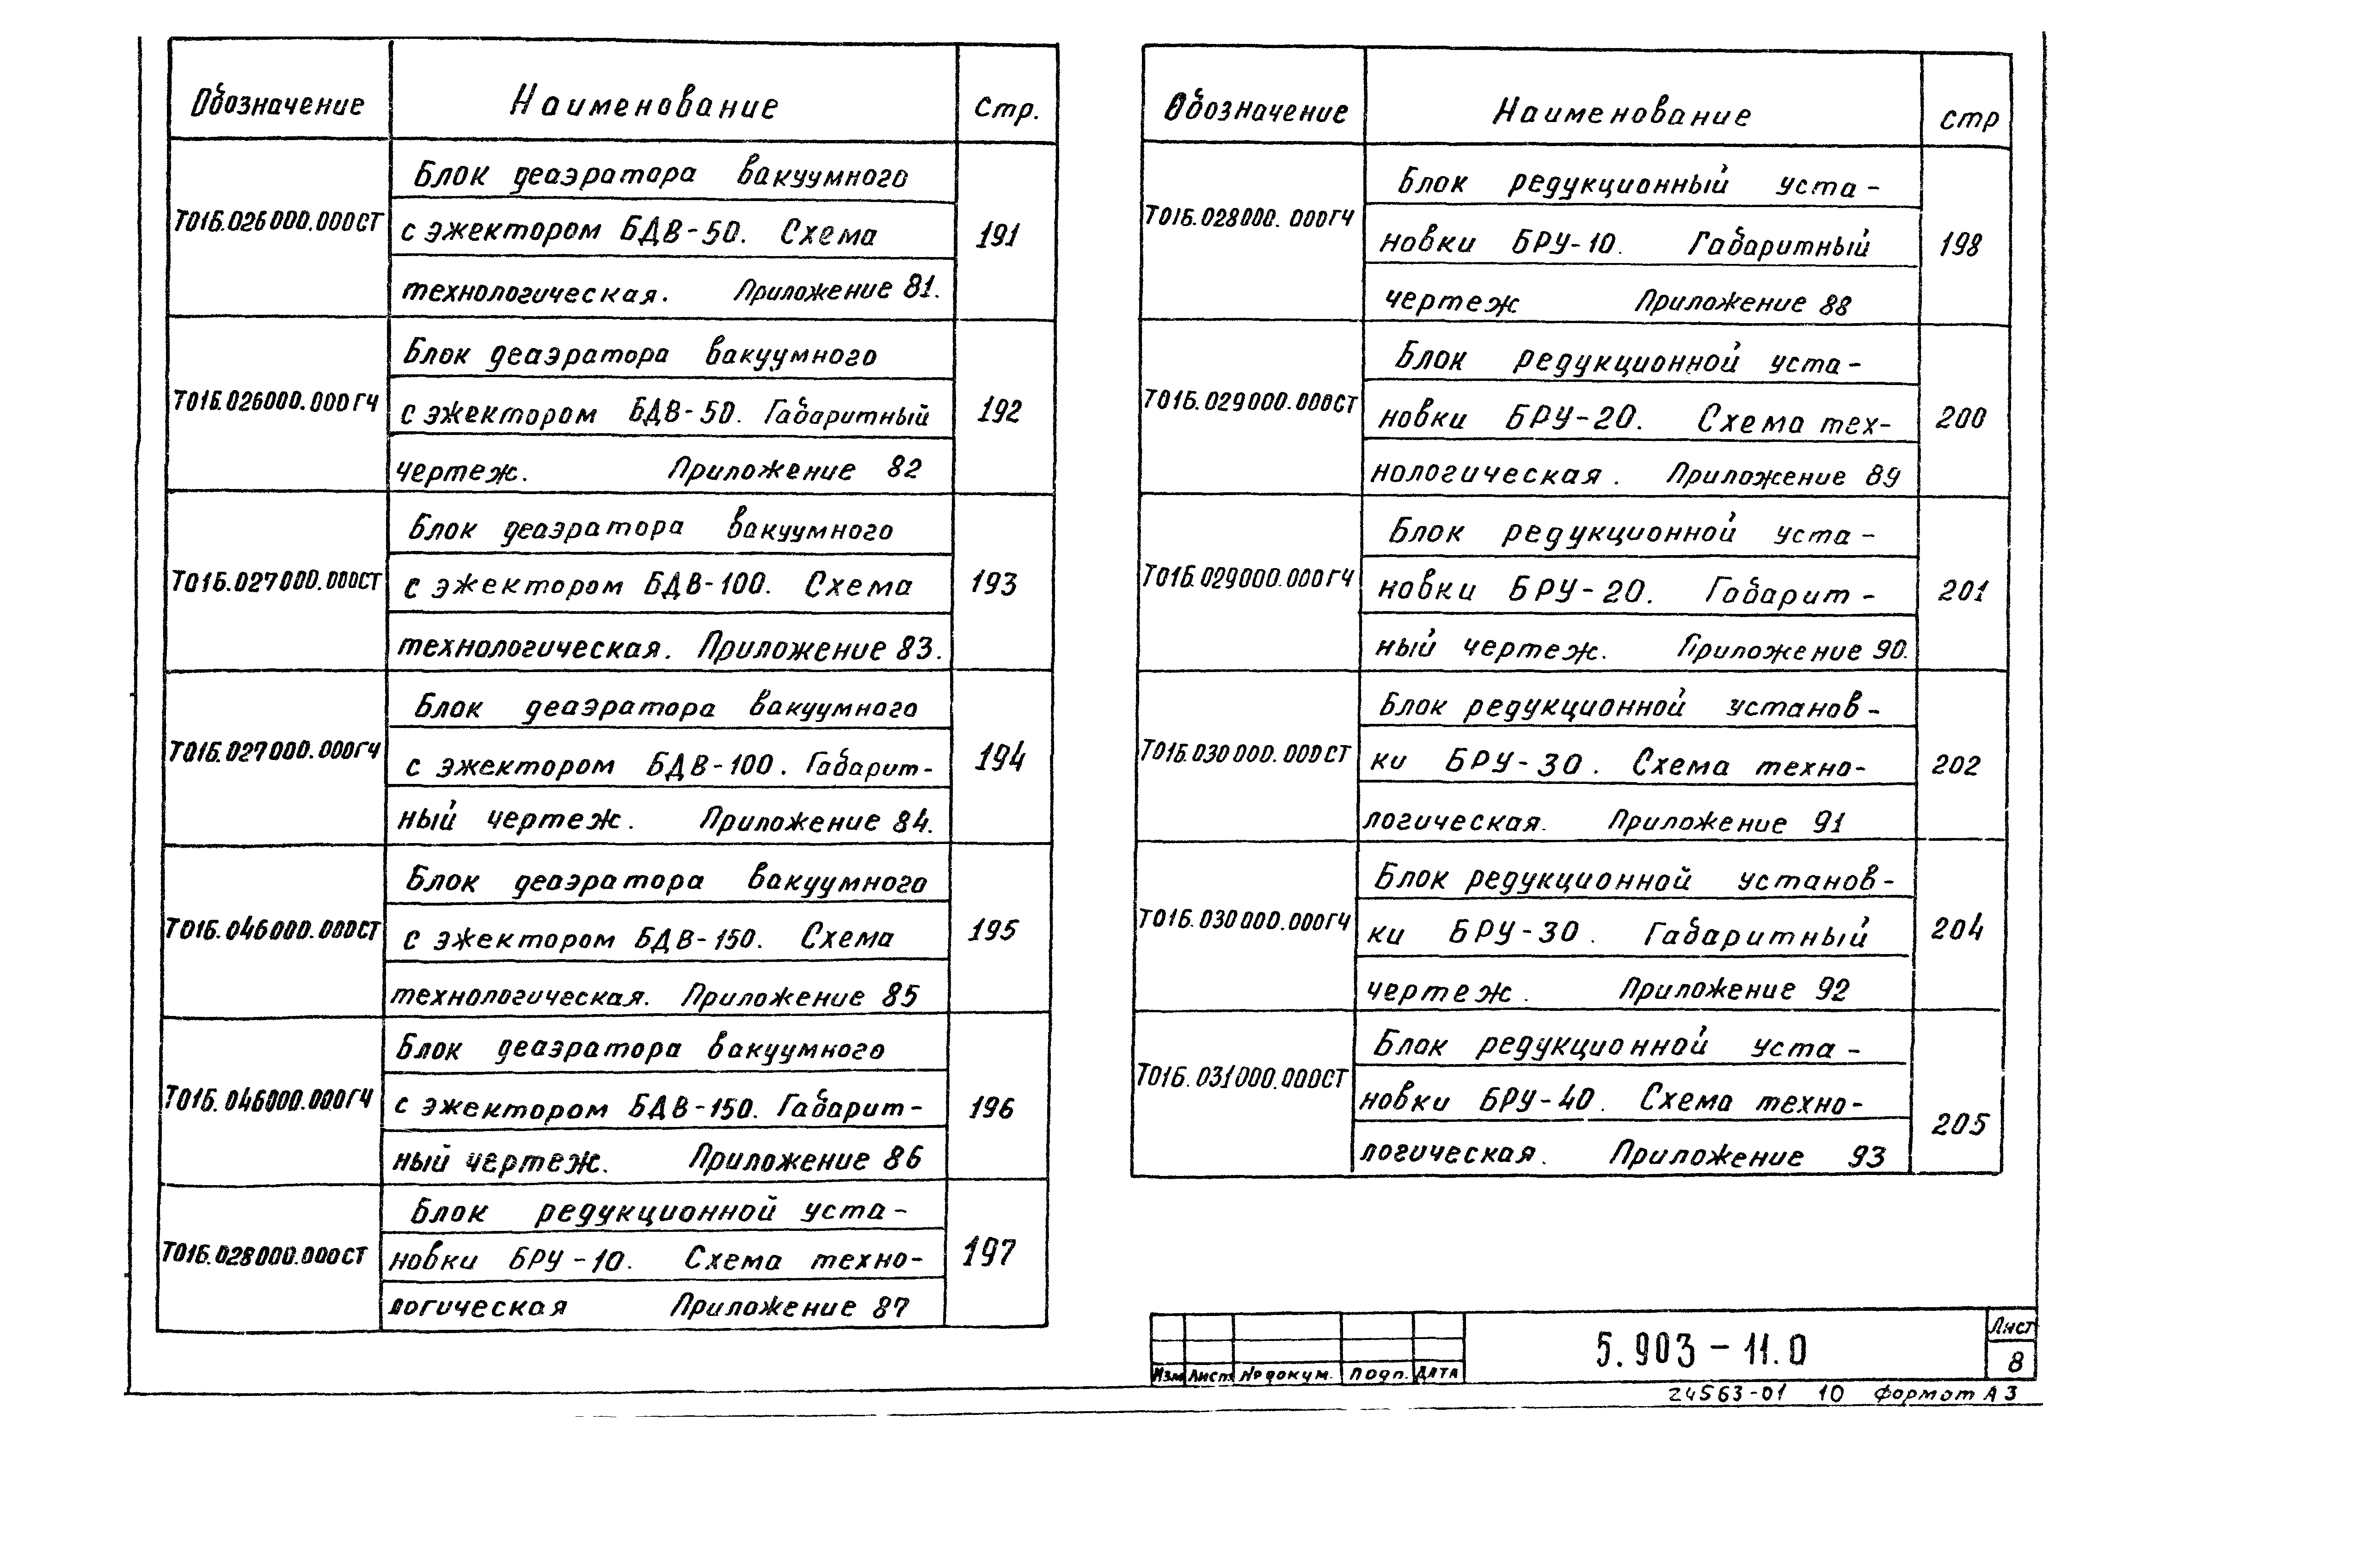 Обозначение Наименование Стр.
Блок деаэратора вакуумного
Т01Б.026000.000СТ с эжектором БДВ-50. Схема 191
технологическая. Приложение 81.
Блок деаэратора вакуумного
Т01Б.026000.000ГЧ с эжектором БДВ-50. Габаритный 192
чертеж. Приложение 82
Блок деаэратора вакуумного
Т01Б.027000.000СТ с эжектором БДВ-100. Схема 193
технологическая. Приложение 83.
Блок деаэратора вакуумного
Т01Б.027000.000ГЧ с эжектором БДВ-100. Габарит- 194
ный чертеж. Приложение 84.
Блок деаэратора вакуумного
Т01Б.046000.000СТ с эжектором БДВ-150. Схема 195
технологическая. Приложение 85
Блок деаэратора вакуумного
Т01Б.046000.000ГЧ с эжектором БДВ-150. Габарит- 196
ный чертеж. Приложение 86
Блок редукционной уста-
Т01Б.028000.000СТ новки БРУ-10. Схема техно- 197
логическая Приложение 87
Обозначение Наименование стр
Блок редукционный уста-
Т01Б.028000.000ГЧ новки БРУ-10. Габаритный 198
чертеж Приложение 88
Блок редукционной уста-
Т01Б.029000.000СТ новки БРУ-20. Схема тех- 200
нологическая. Приложение 89
Блок редукционной уста-
Т01Б.029000.000ГЧ новки БРУ-20. Габарит- 201
ный чертеж. Приложение 90.
Блок редукционной установ-
Т01Б.030000.000СТ ки БРУ-30. Схема техно- 202
логическая. Приложение 91
Блок редукционной установ-
Т01Б.030000.000ГЧ ки БРУ-30. Габаритный 204
чертеж. Приложение 92
Блок редукционной уста-
Т01Б.031000.000СТ новки БРУ-40. Схема техно- 205
логическая. Приложение 93
5.903-11.0 Лист
8
Изм Лист № докум. Подп. Дата
24563-01 10 Формат А3